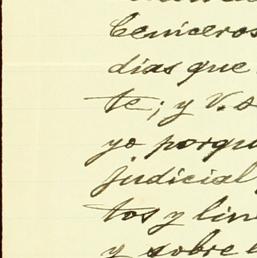 Ceniceros
dias que
te; y V. s
yo porqu
judicial
tos y lin
y sobre e